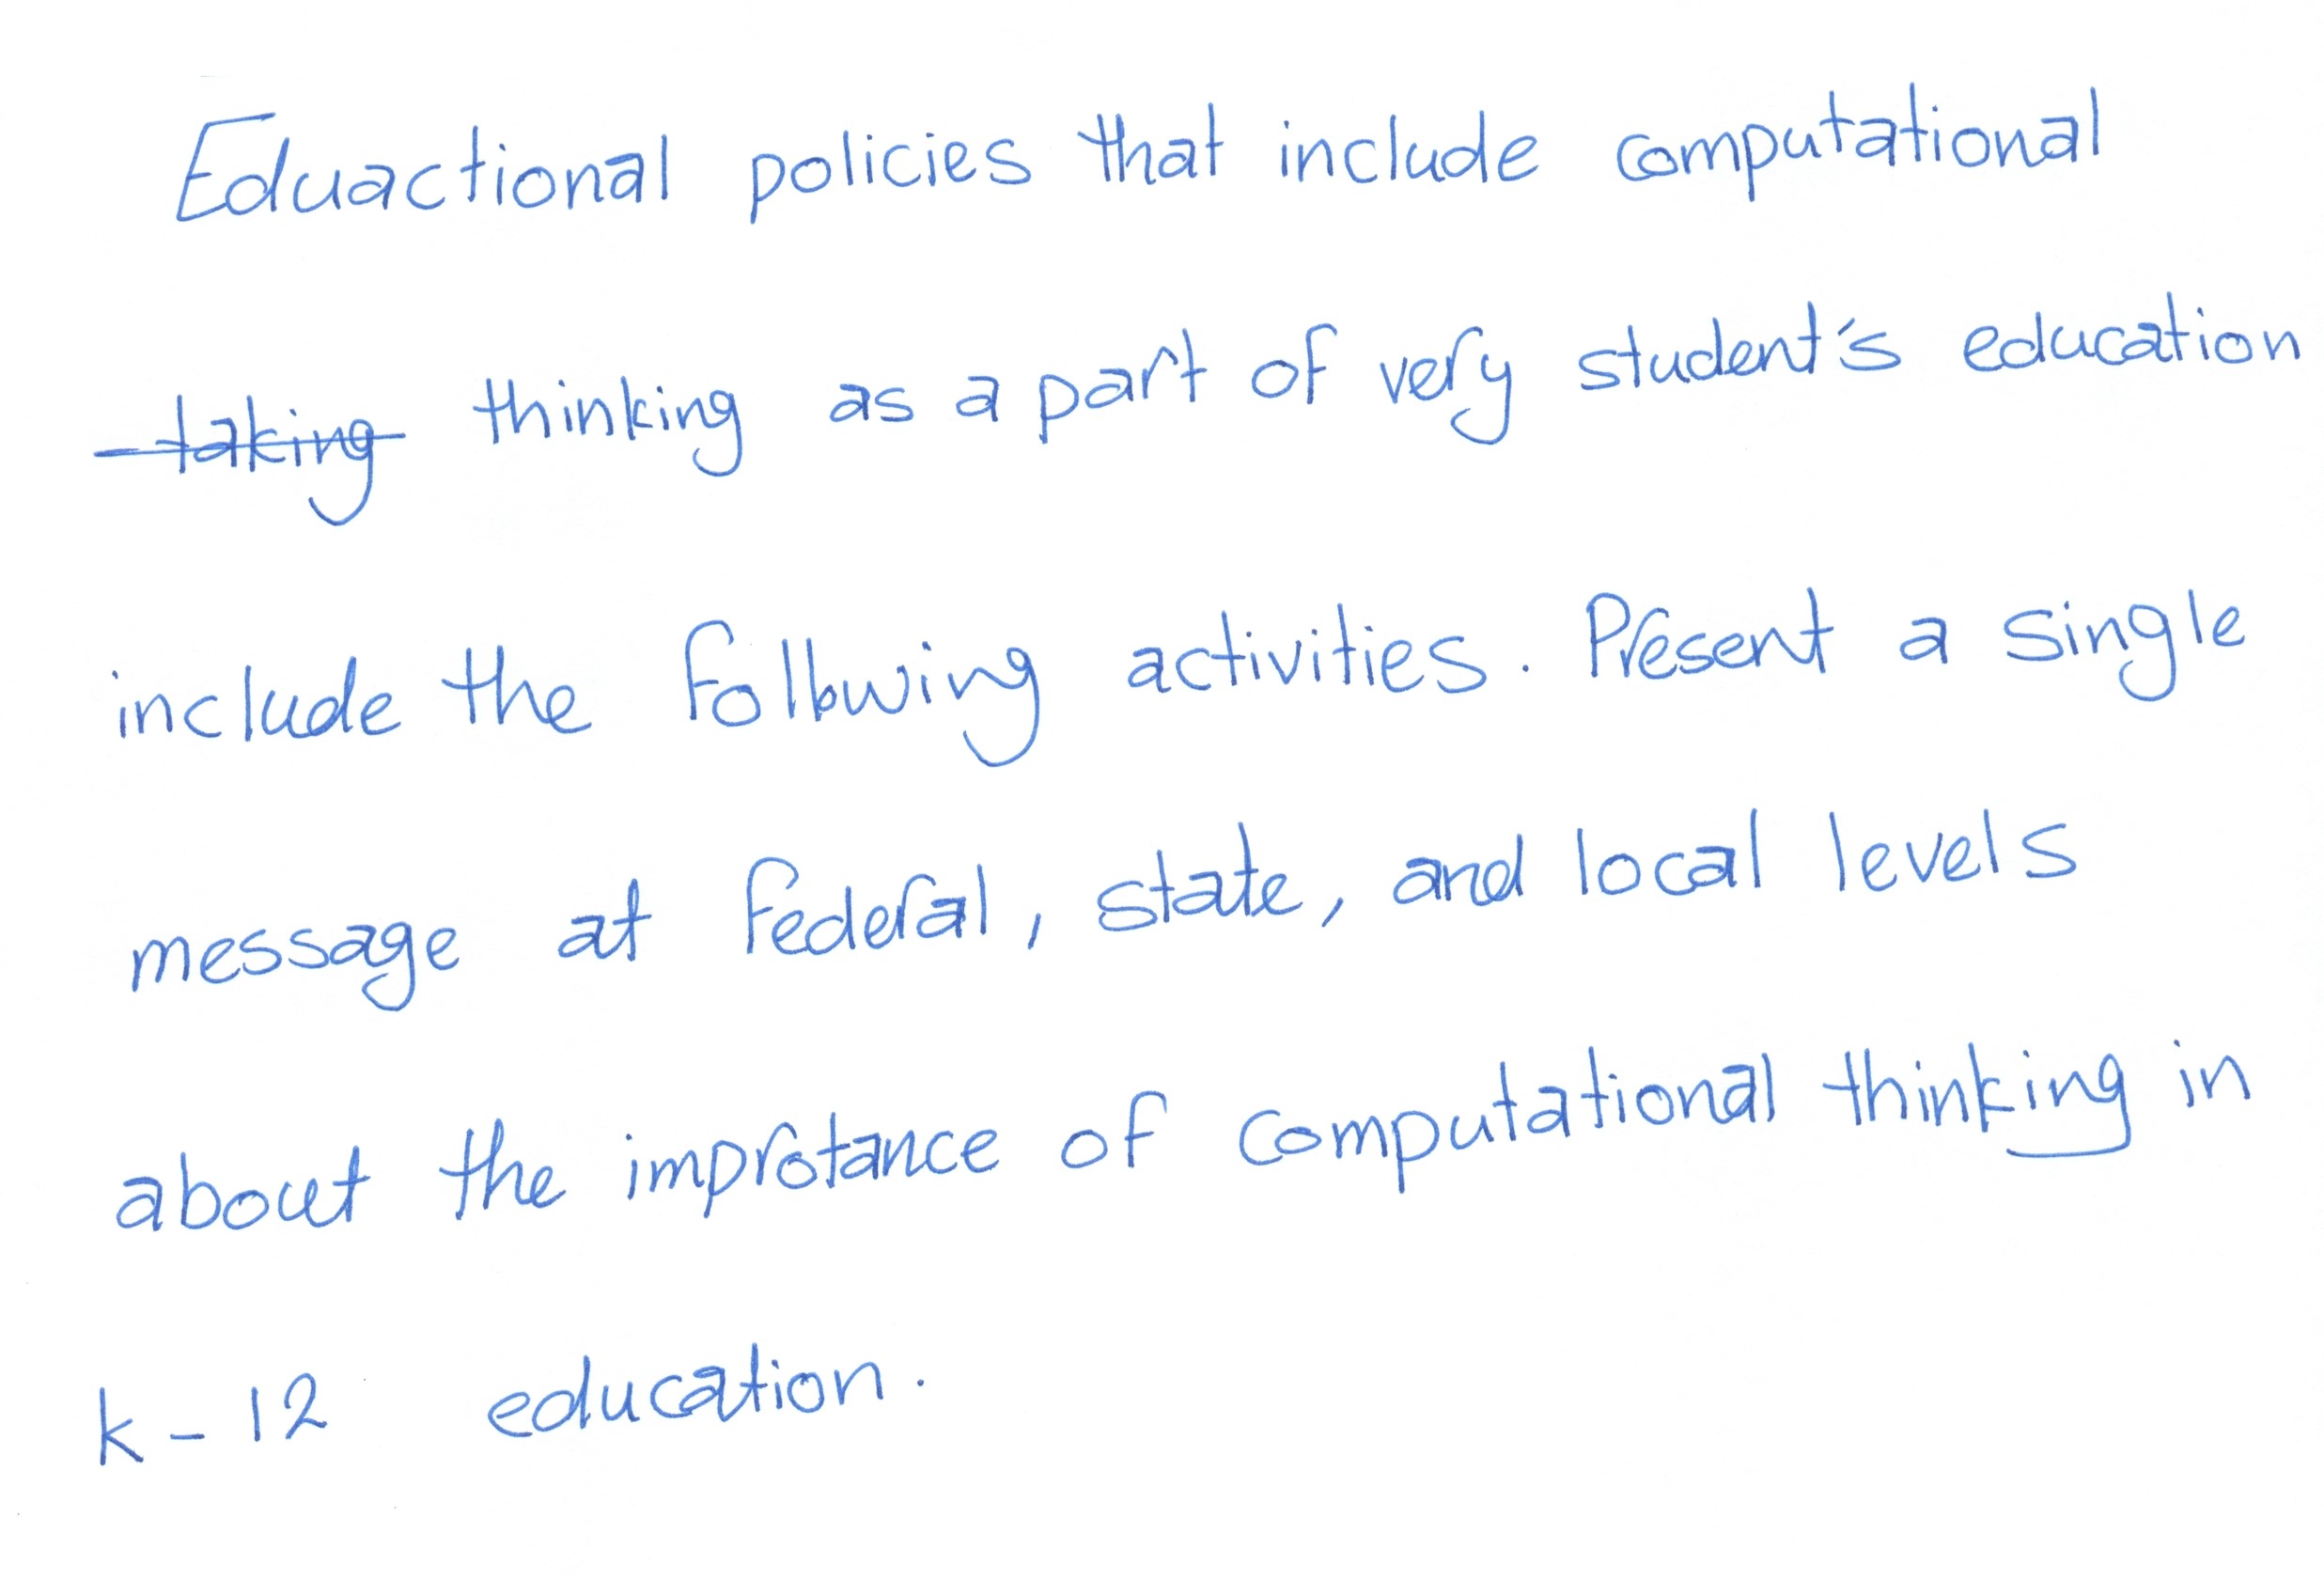 Eduactional policies that include computational
taking thinking as a part of very student's education
include the following activities. Present a single
message at federal, state, and local levels
about the improtance of computational thinking in
k-12 education.